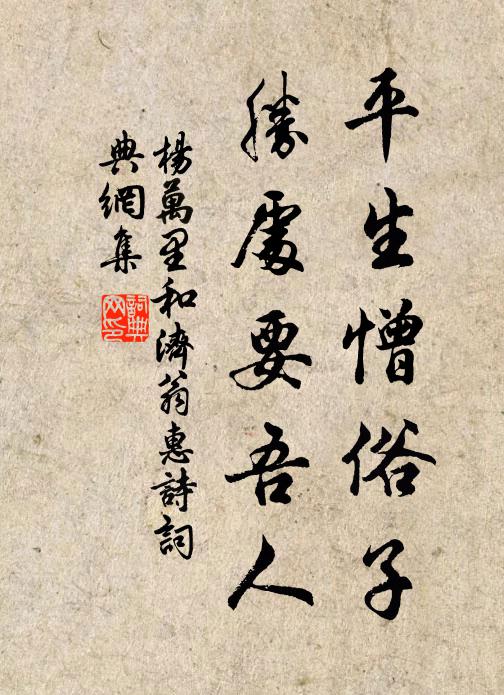 平生憎俗子
勝處要吾人
楊萬里和濟翁惠詩詞
典網集
詞典
网印